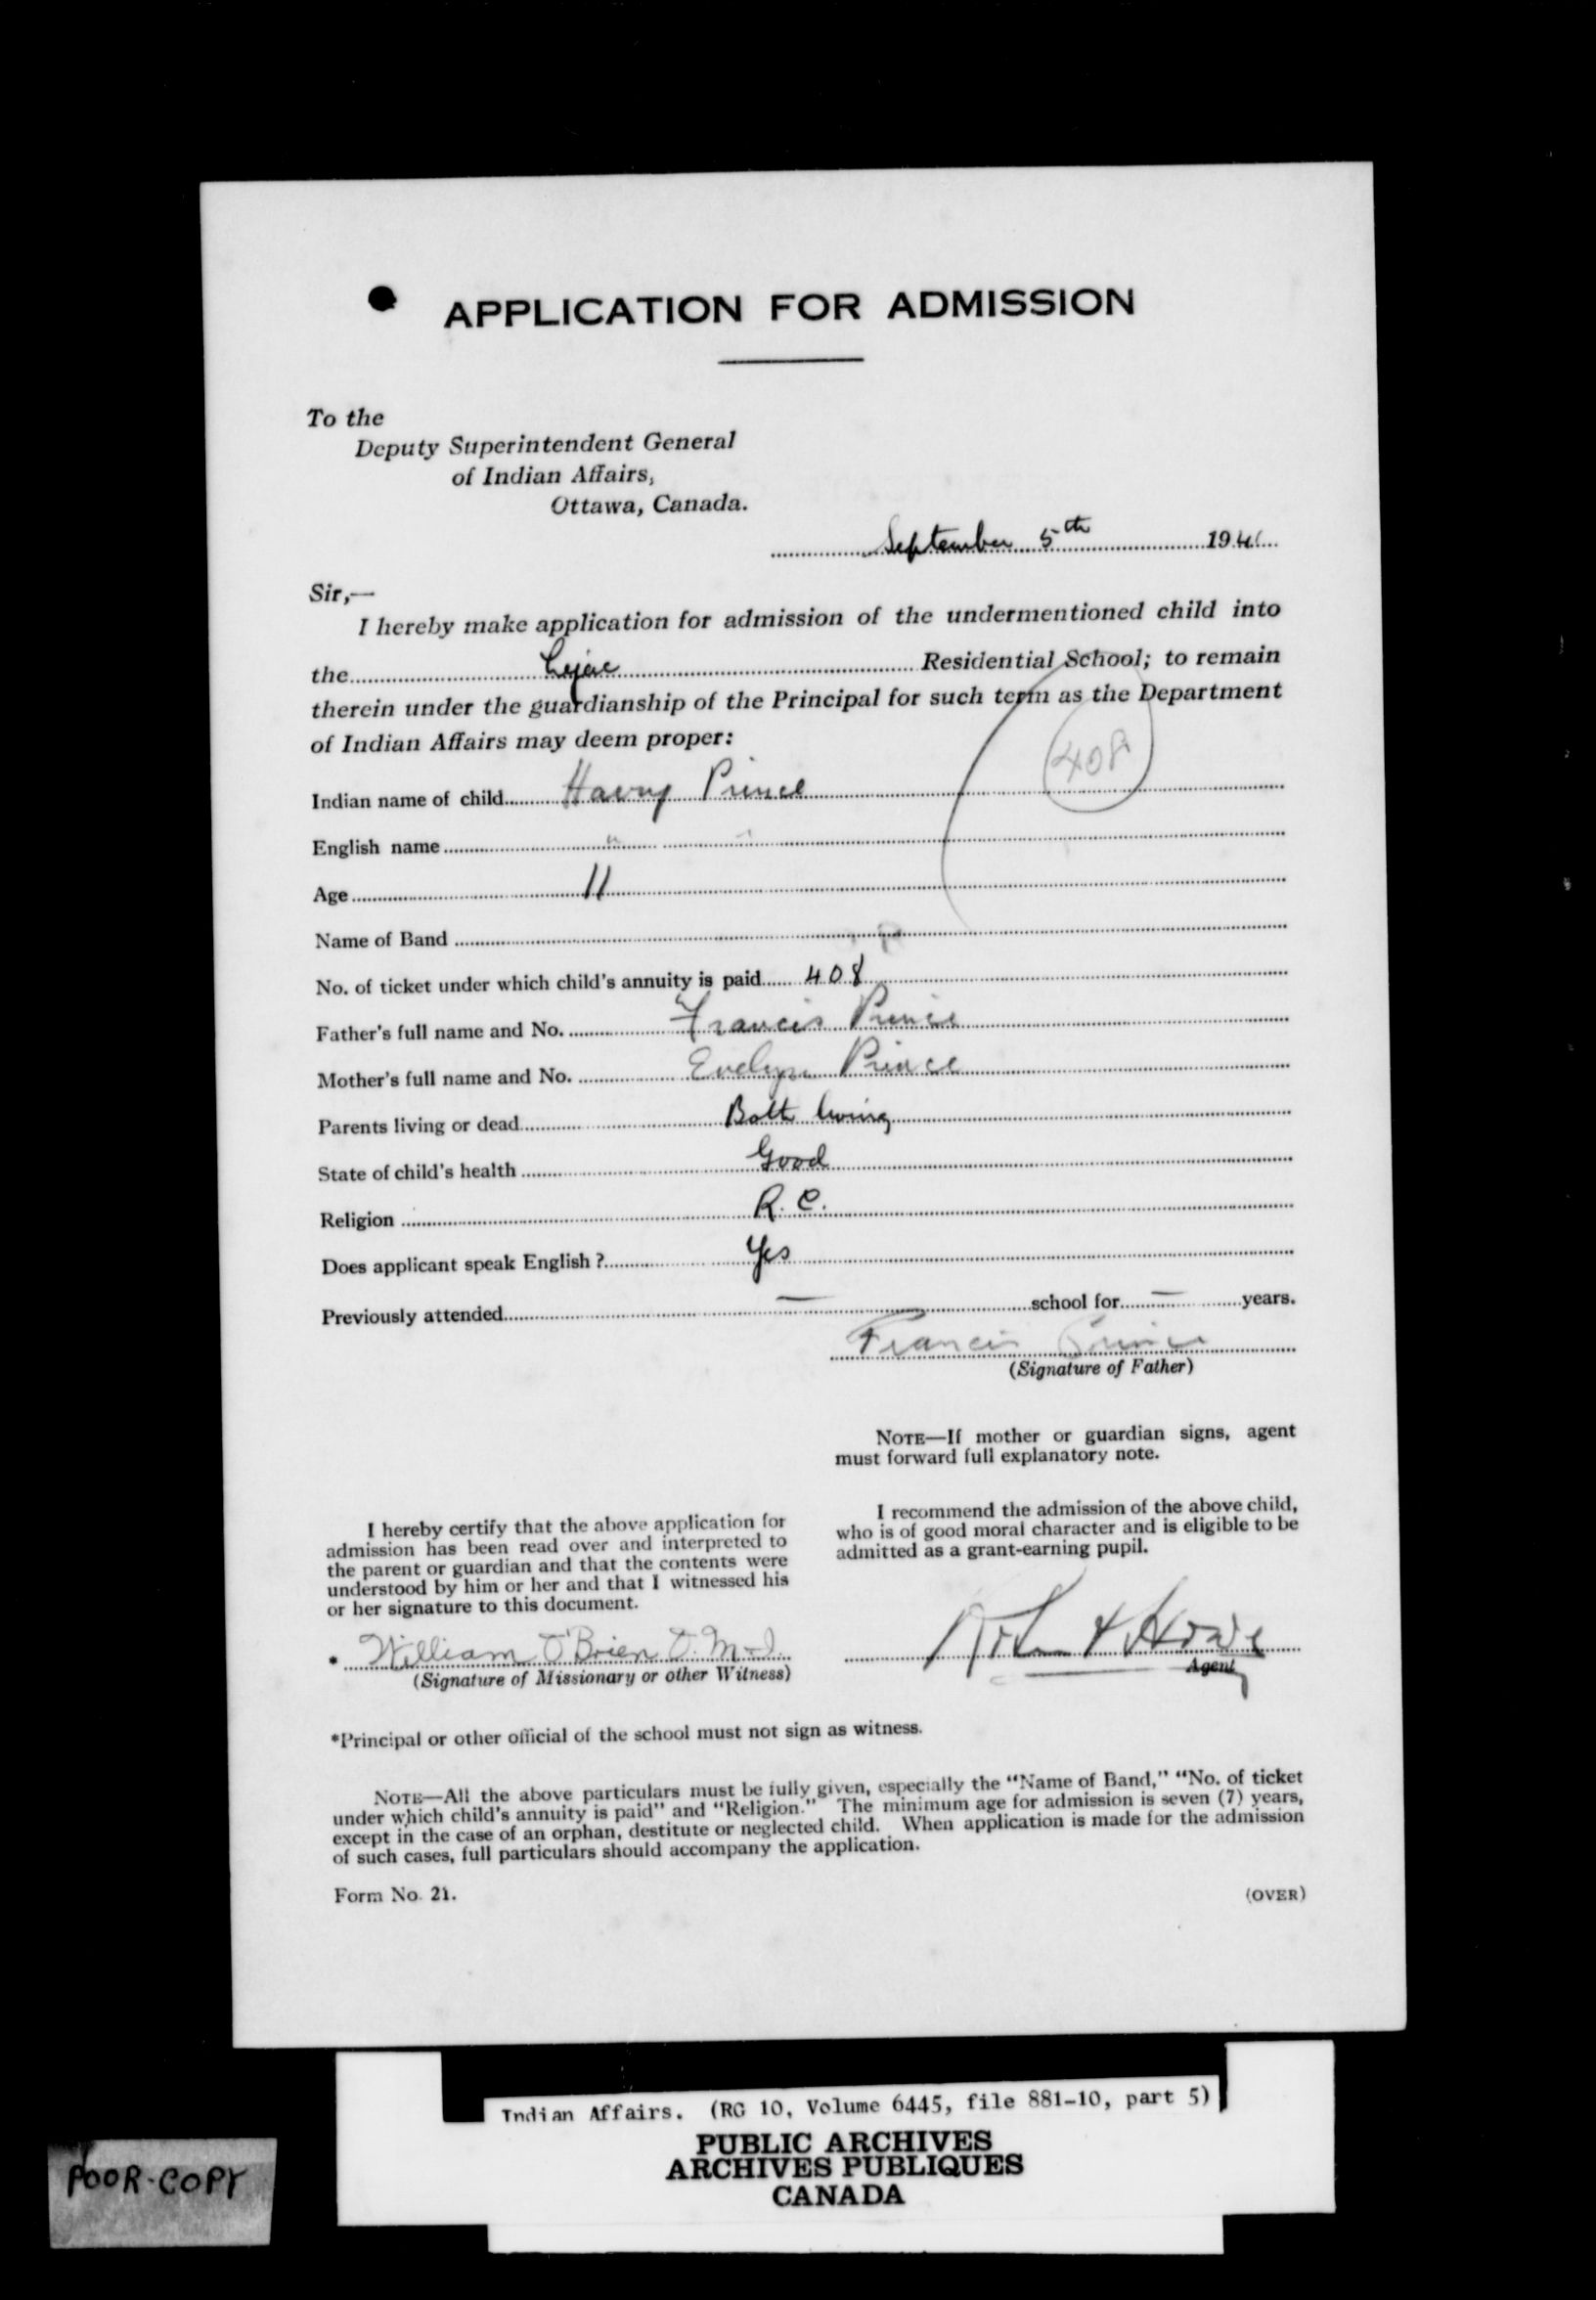 APPLICATION FOR ADMISSION
To the
Deputy Superintendent General
of Indian Affairs,
Ottawa, Canada.
September 5th 194
Sir,—
I hereby make application for admission of the undermentioned child into
the Lejac Residential School; to remain
therein under the guardianship of the Principal for such term as the Department
of Indian Affairs may deem proper:
408
Indian name of child Harry Prince
English name " "
Age 11
Name of Band
No. of ticket under which child's annuity is paid 408
Father's full name and No. Francis Prince
Mother's full name and No. Evelyn Prince
Parents living or dead Both living
State of child's health Good
Religion R. C.
Does applicant speak English ? Yes
Previously attended — school for — years.
Francis Prince
(Signature of Father)
NOTE—If mother or guardian signs, agent
must forward full explanatory note.
I hereby certify that the above application for
admission has been read over and interpreted to
the parent or guardian and that the contents were
understood by him or her and that I witnessed his
or her signature to this document.
* William O'Brien O.M.I.
(Signature of Missionary or other Witness)
I recommend the admission of the above child,
who is of good moral character and is eligible to be
admitted as a grant-earning pupil.
Howe
Agent
*Principal or other official of the school must not sign as witness.
NOTE—All the above particulars must be fully given, especially the "Name of Band," "No. of ticket
under which child's annuity is paid" and "Religion." The minimum age for admission is seven (7) years,
except in the case of an orphan, destitute or neglected child. When application is made for the admission
of such cases, full particulars should accompany the application.
Form No. 21.
(OVER)
Indian Affairs. (RG 10, Volume 6445, file 881-10, part 5)
PUBLIC ARCHIVES
ARCHIVES PUBLIQUES
CANADA
POOR-COPY